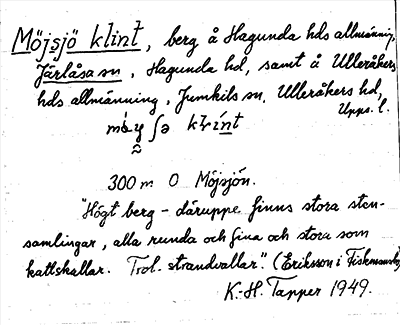 Möjsjö klint, berg å Hagunda hds allmänning,
Järlåsa sn, Hagunda hd, samt å Ulleråkers
hds allmänning, Jumkils sn, Ulleråkers hd,
Upps. l.
300 m O Möjsjön.
"Högt berg – däruppe finns stora sten-
samlingar, alla runda och fina och stora som
kattskallar. Trol. strandvallar." (Eriksson i
K.-H. Tapper 1949.